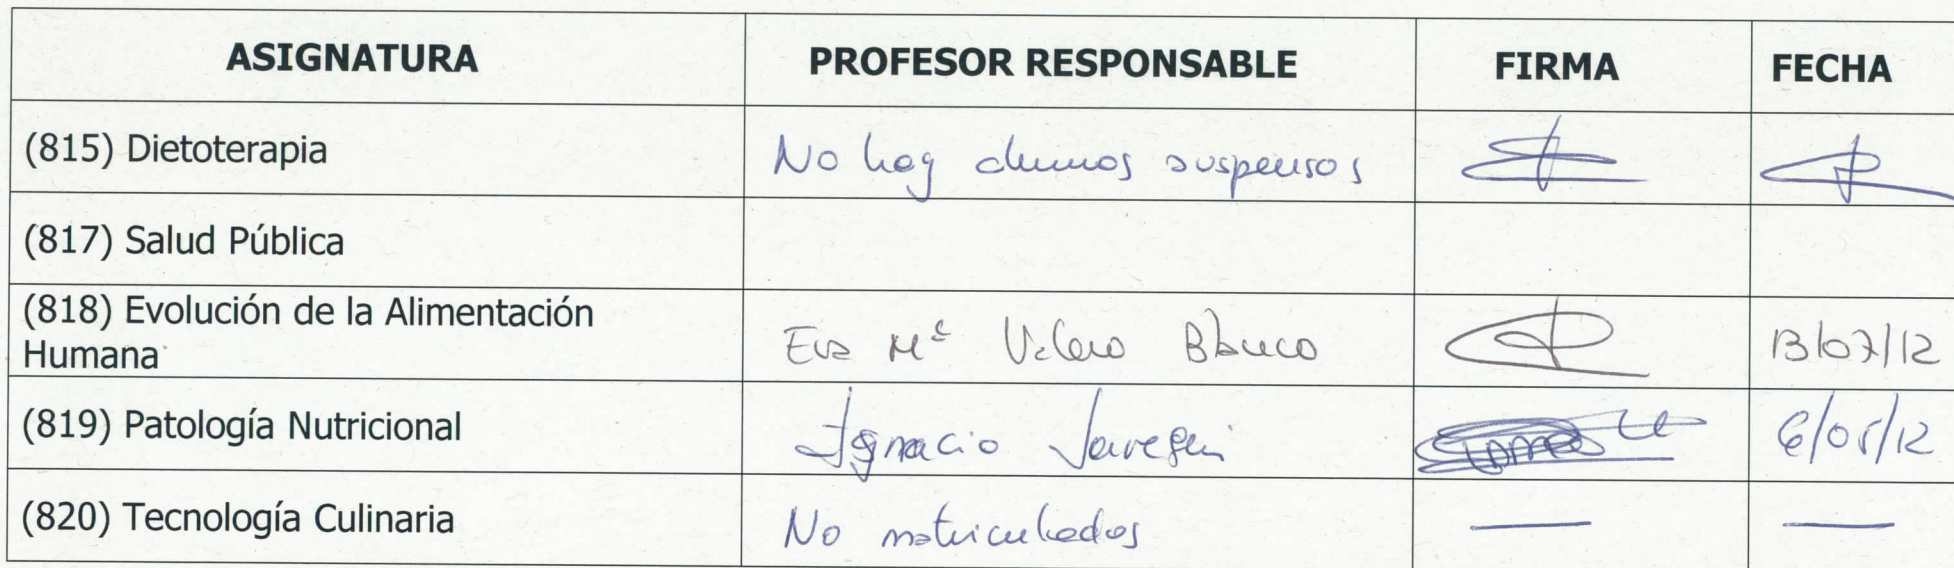 ASIGNATURA PROFESOR RESPONSABLE FIRMA FECHA
(815) Dietoterapia No hay alumnos suspensos
(817) Salud Pública
(818) Evolución de la Alimentación
Humana Eva Mª Valero Blanco 13/07/12
(819) Patología Nutricional Ignacio Jáuregui 6/05/12
(820) Tecnología Culinaria No matriculados — —